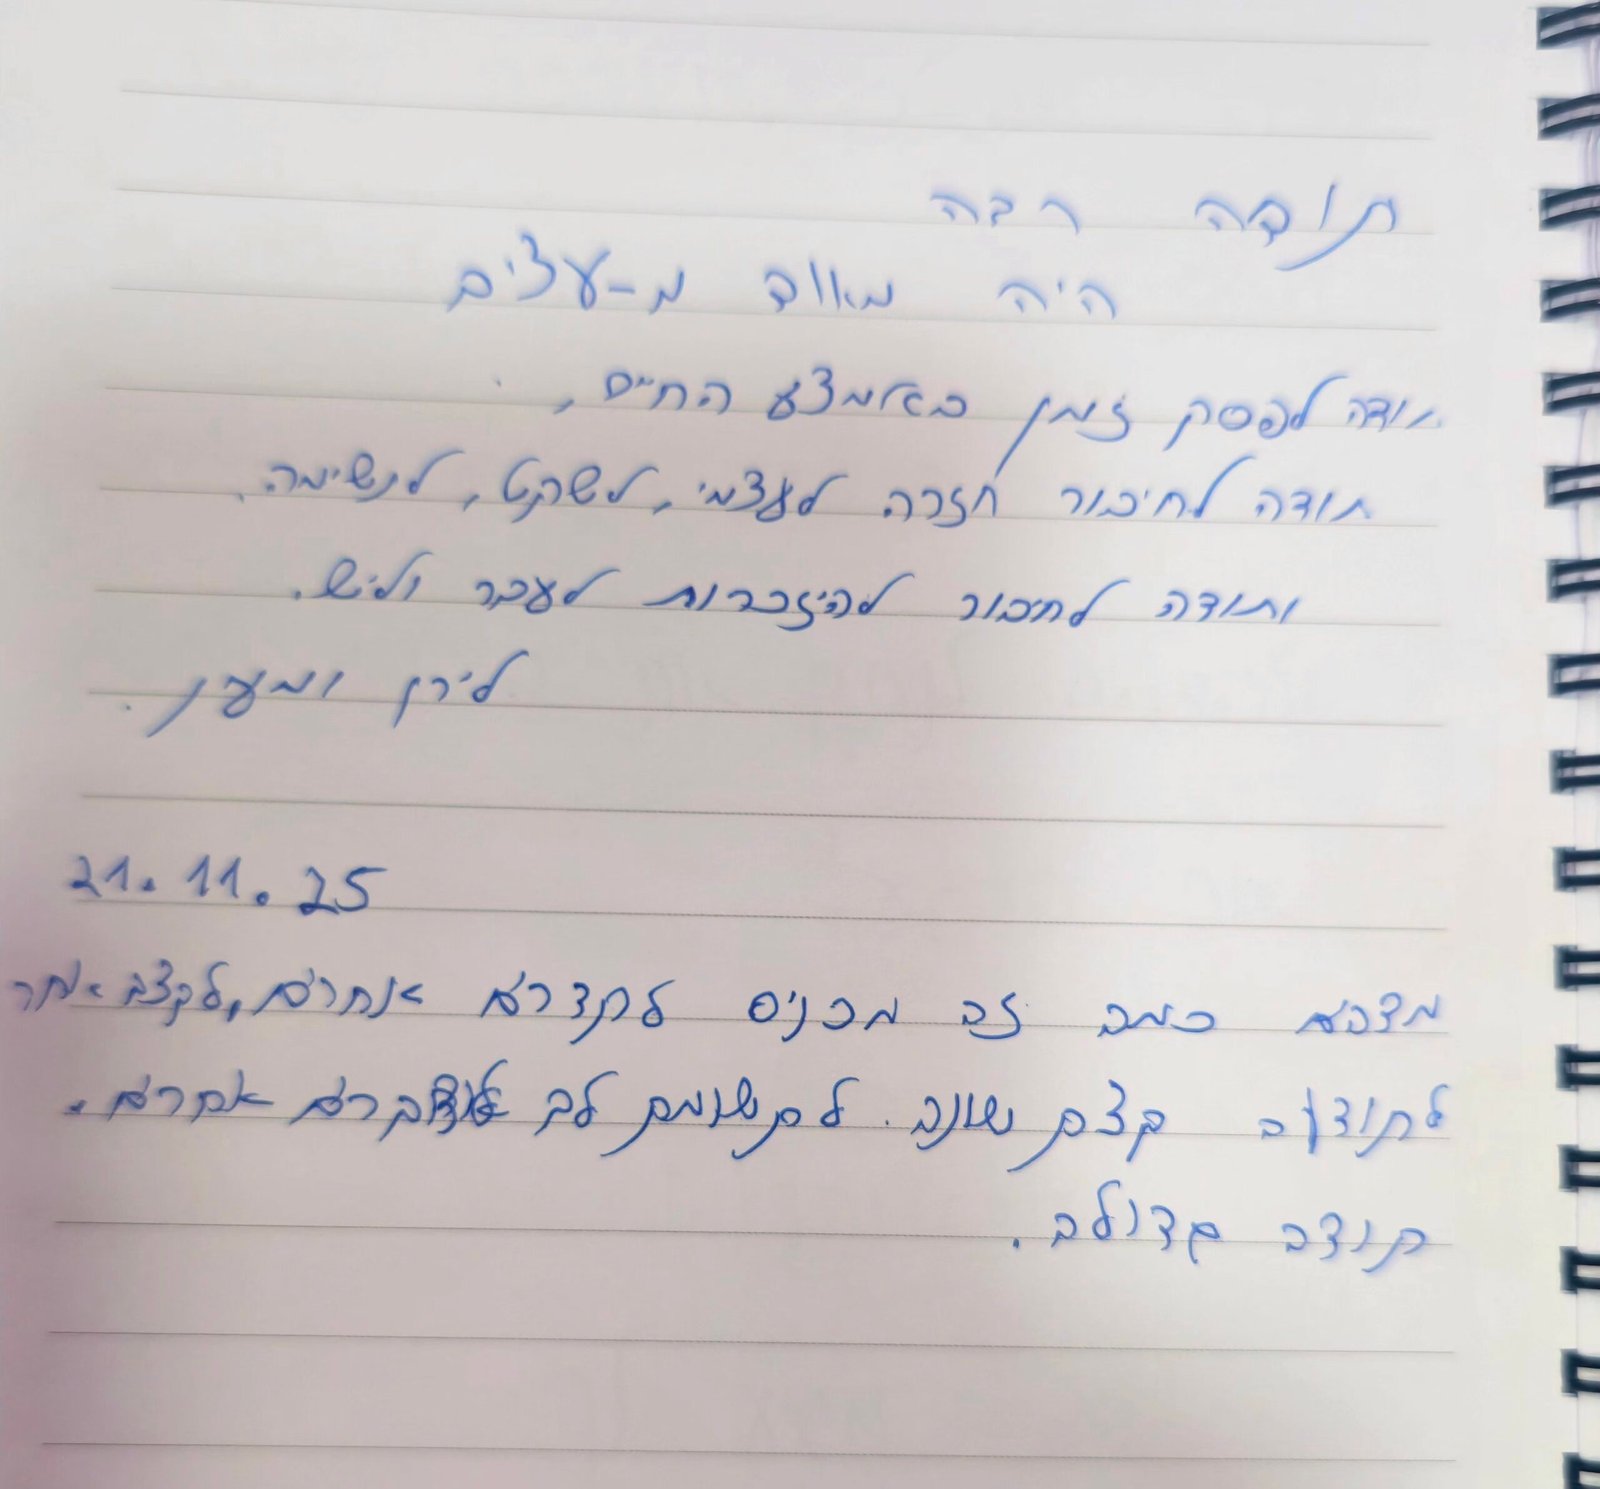 תודה רבה
היה מאוד מ-עצים
תודה לפסק זמן באמצע החיים,
תודה לחיבור חזרה לעצמי, לשקט, לנשימה.
ותודה לחיבור להיזכרות לעבר וליש.
לירן ומעין.
21.11.25
מצבע כמה זה מכניס לתדרים אחרים, לקצב אחר
לתודעה קצת שונה. לתשומת לב לדברים אחרים.
תודה גדולה.